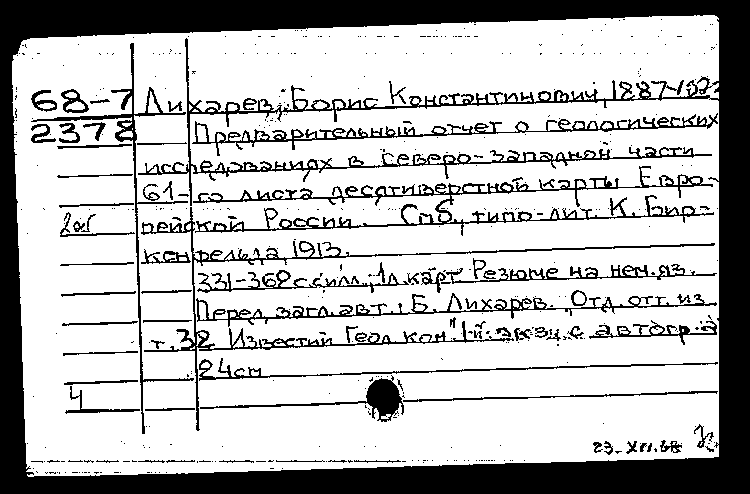 68-7 Лихарев, Борис Константинович, 1887-
2378 Предварительный отчет о геологических
исследованиях в северо-западной части
61-го листа десятиверстной карты Евро-
пейской России. Спб., типо-лит. К. Бир-
кенфельда, 1913.
331-368 с. с илл., 1 л. карт. Резюме на нем. яз.
Перед загл. авт.: Б. Лихарев. "Отд. отт. из
т. 32 Известий Геол. ком". 1-й: экз. с автогр. а
24 см
4
23. XII. 68